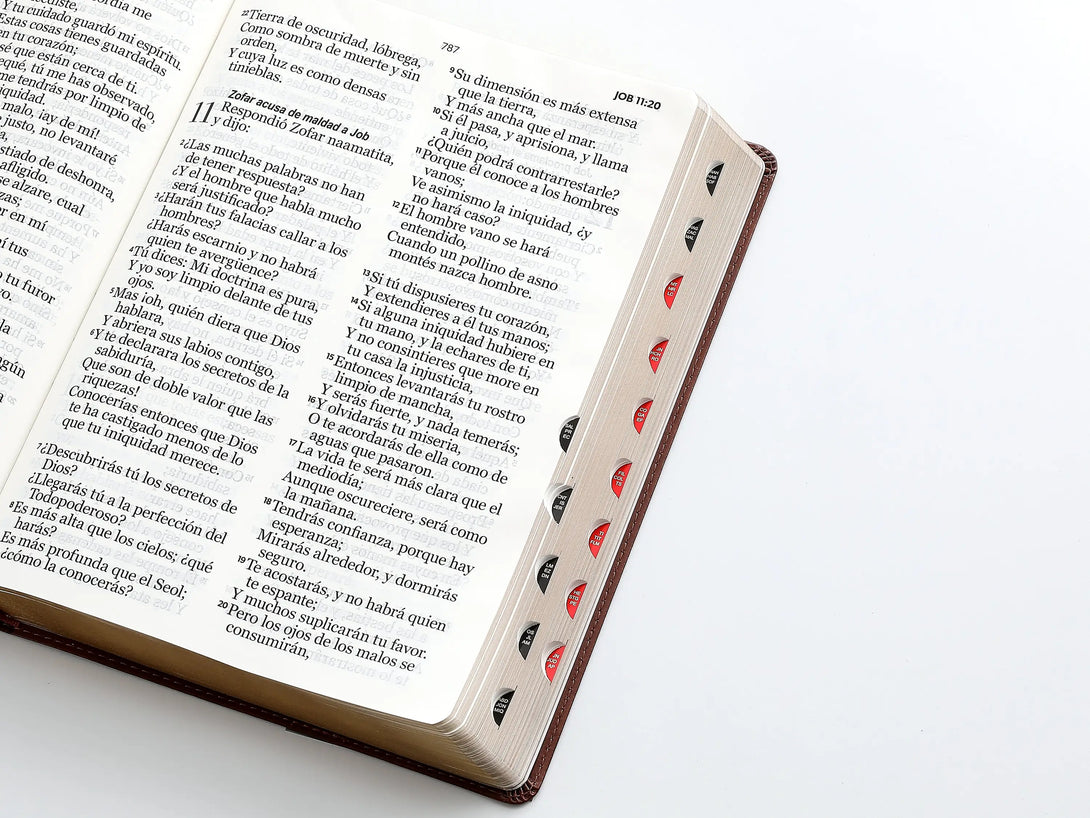 rdia me
ciste,
Y tu cuidado guardó mi espíritu.
Estas cosas tienes guardadas
en tu corazón;
sé que están cerca de ti.
equé, tú me has observado,
me tendrás por limpio de
iniquidad.
malo, ¡ay de mí!
justo, no levantaré
a,
stiado de deshonra,
afligido.
se alzare, cual
zas;
or en mí
tus
tu furor
vo.
la
ningún
22 Tierra de oscuridad, lóbrega,
Como sombra de muerte y sin
orden,
Y cuya luz es como densas
tinieblas.
Zofar acusa de maldad a Job
11 Respondió Zofar naamatita,
y dijo:
2 ¿Las muchas palabras no han
de tener respuesta?
¿Y el hombre que habla mucho
será justificado?
3 ¿Harán tus falacias callar a los
hombres?
¿Harás escarnio y no habrá
quien te avergüence?
4 Tú dices: Mi doctrina es pura,
Y yo soy limpio delante de tus
ojos.
5 Mas ¡oh, quién diera que Dios
hablara,
Y abriera sus labios contigo,
6 Y te declarara los secretos de la
sabiduría,
Que son de doble valor que las
riquezas!
Conocerías entonces que Dios
te ha castigado menos de lo
que tu iniquidad merece.
7 ¿Descubrirás tú los secretos de
Dios?
¿Llegarás tú a la perfección del
Todopoderoso?
8 Es más alta que los cielos; ¿qué
harás?
Es más profunda que el Seol;
¿cómo la conocerás?
787
JOB 11:20
9 Su dimensión es más extensa
que la tierra,
Y más ancha que el mar.
10 Si él pasa, y aprisiona, y llama
a juicio,
¿Quién podrá contrarrestarle?
11 Porque él conoce a los hombres
vanos;
Ve asimismo la iniquidad, ¿y
no hará caso?
12 El hombre vano se hará
entendido,
Cuando un pollino de asno
montés nazca hombre.
13 Si tú dispusieres tu corazón,
Y extendieres a él tus manos;
14 Si alguna iniquidad hubiere en
tu mano, y la echares de ti,
Y no consintieres que more en
tu casa la injusticia,
15 Entonces levantarás tu rostro
limpio de mancha,
Y serás fuerte, y nada temerás;
16 Y olvidarás tu miseria,
O te acordarás de ella como de
aguas que pasaron.
17 La vida te será más clara que el
mediodía;
Aunque oscureciere, será como
la mañana.
18 Tendrás confianza, porque hay
esperanza;
Mirarás alrededor, y dormirás
seguro.
19 Te acostarás, y no habrá quien
te espante;
Y muchos suplicarán tu favor.
20 Pero los ojos de los malos se
consumirán,
SAL
PR
EC
CNT
IS
JER
LM
EZ
DN
OS
JL
AM
ABD
JON
MIQ
HE
STG
PE